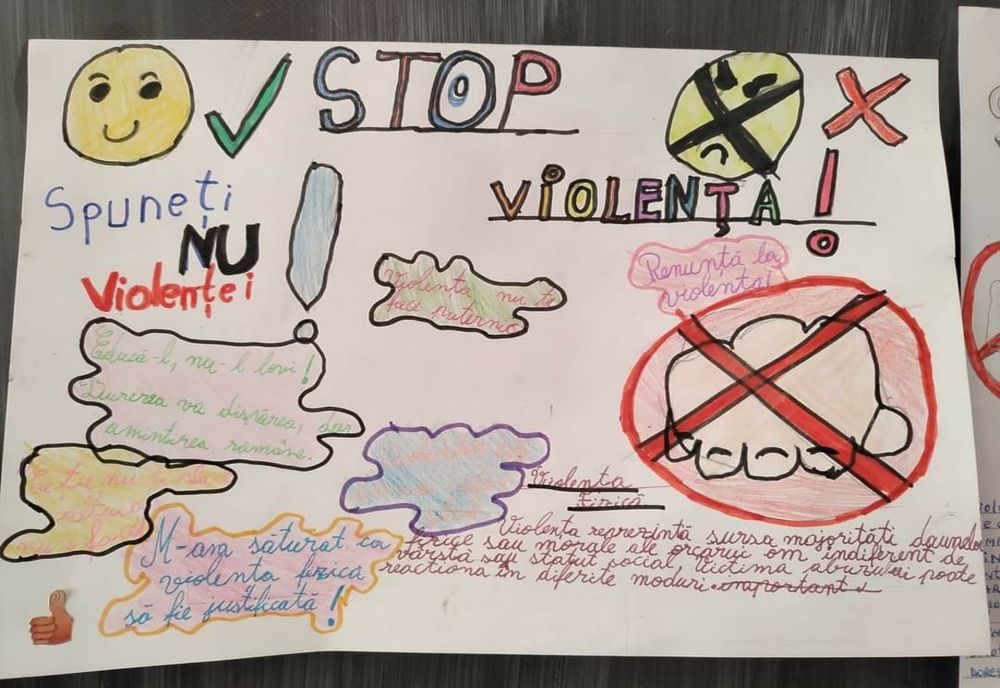 STOP
VIOLENȚA!
Spuneți
NU
Violenței
Violența nu te
face puternic
Renunță la
violență!
Educă-l, nu-l lovi!
Durerea va dispărea, dar
amintirea rămâne.
Violența
Fizică
Violența reprezintă sursa majorități daunelor
fizice sau morale ale orcărui om indiferent de
vârstă sau statut social. Victima abuzului poate
reacționa în diferite moduri.
M-am săturat ca
violența fizică
să fie justificată!